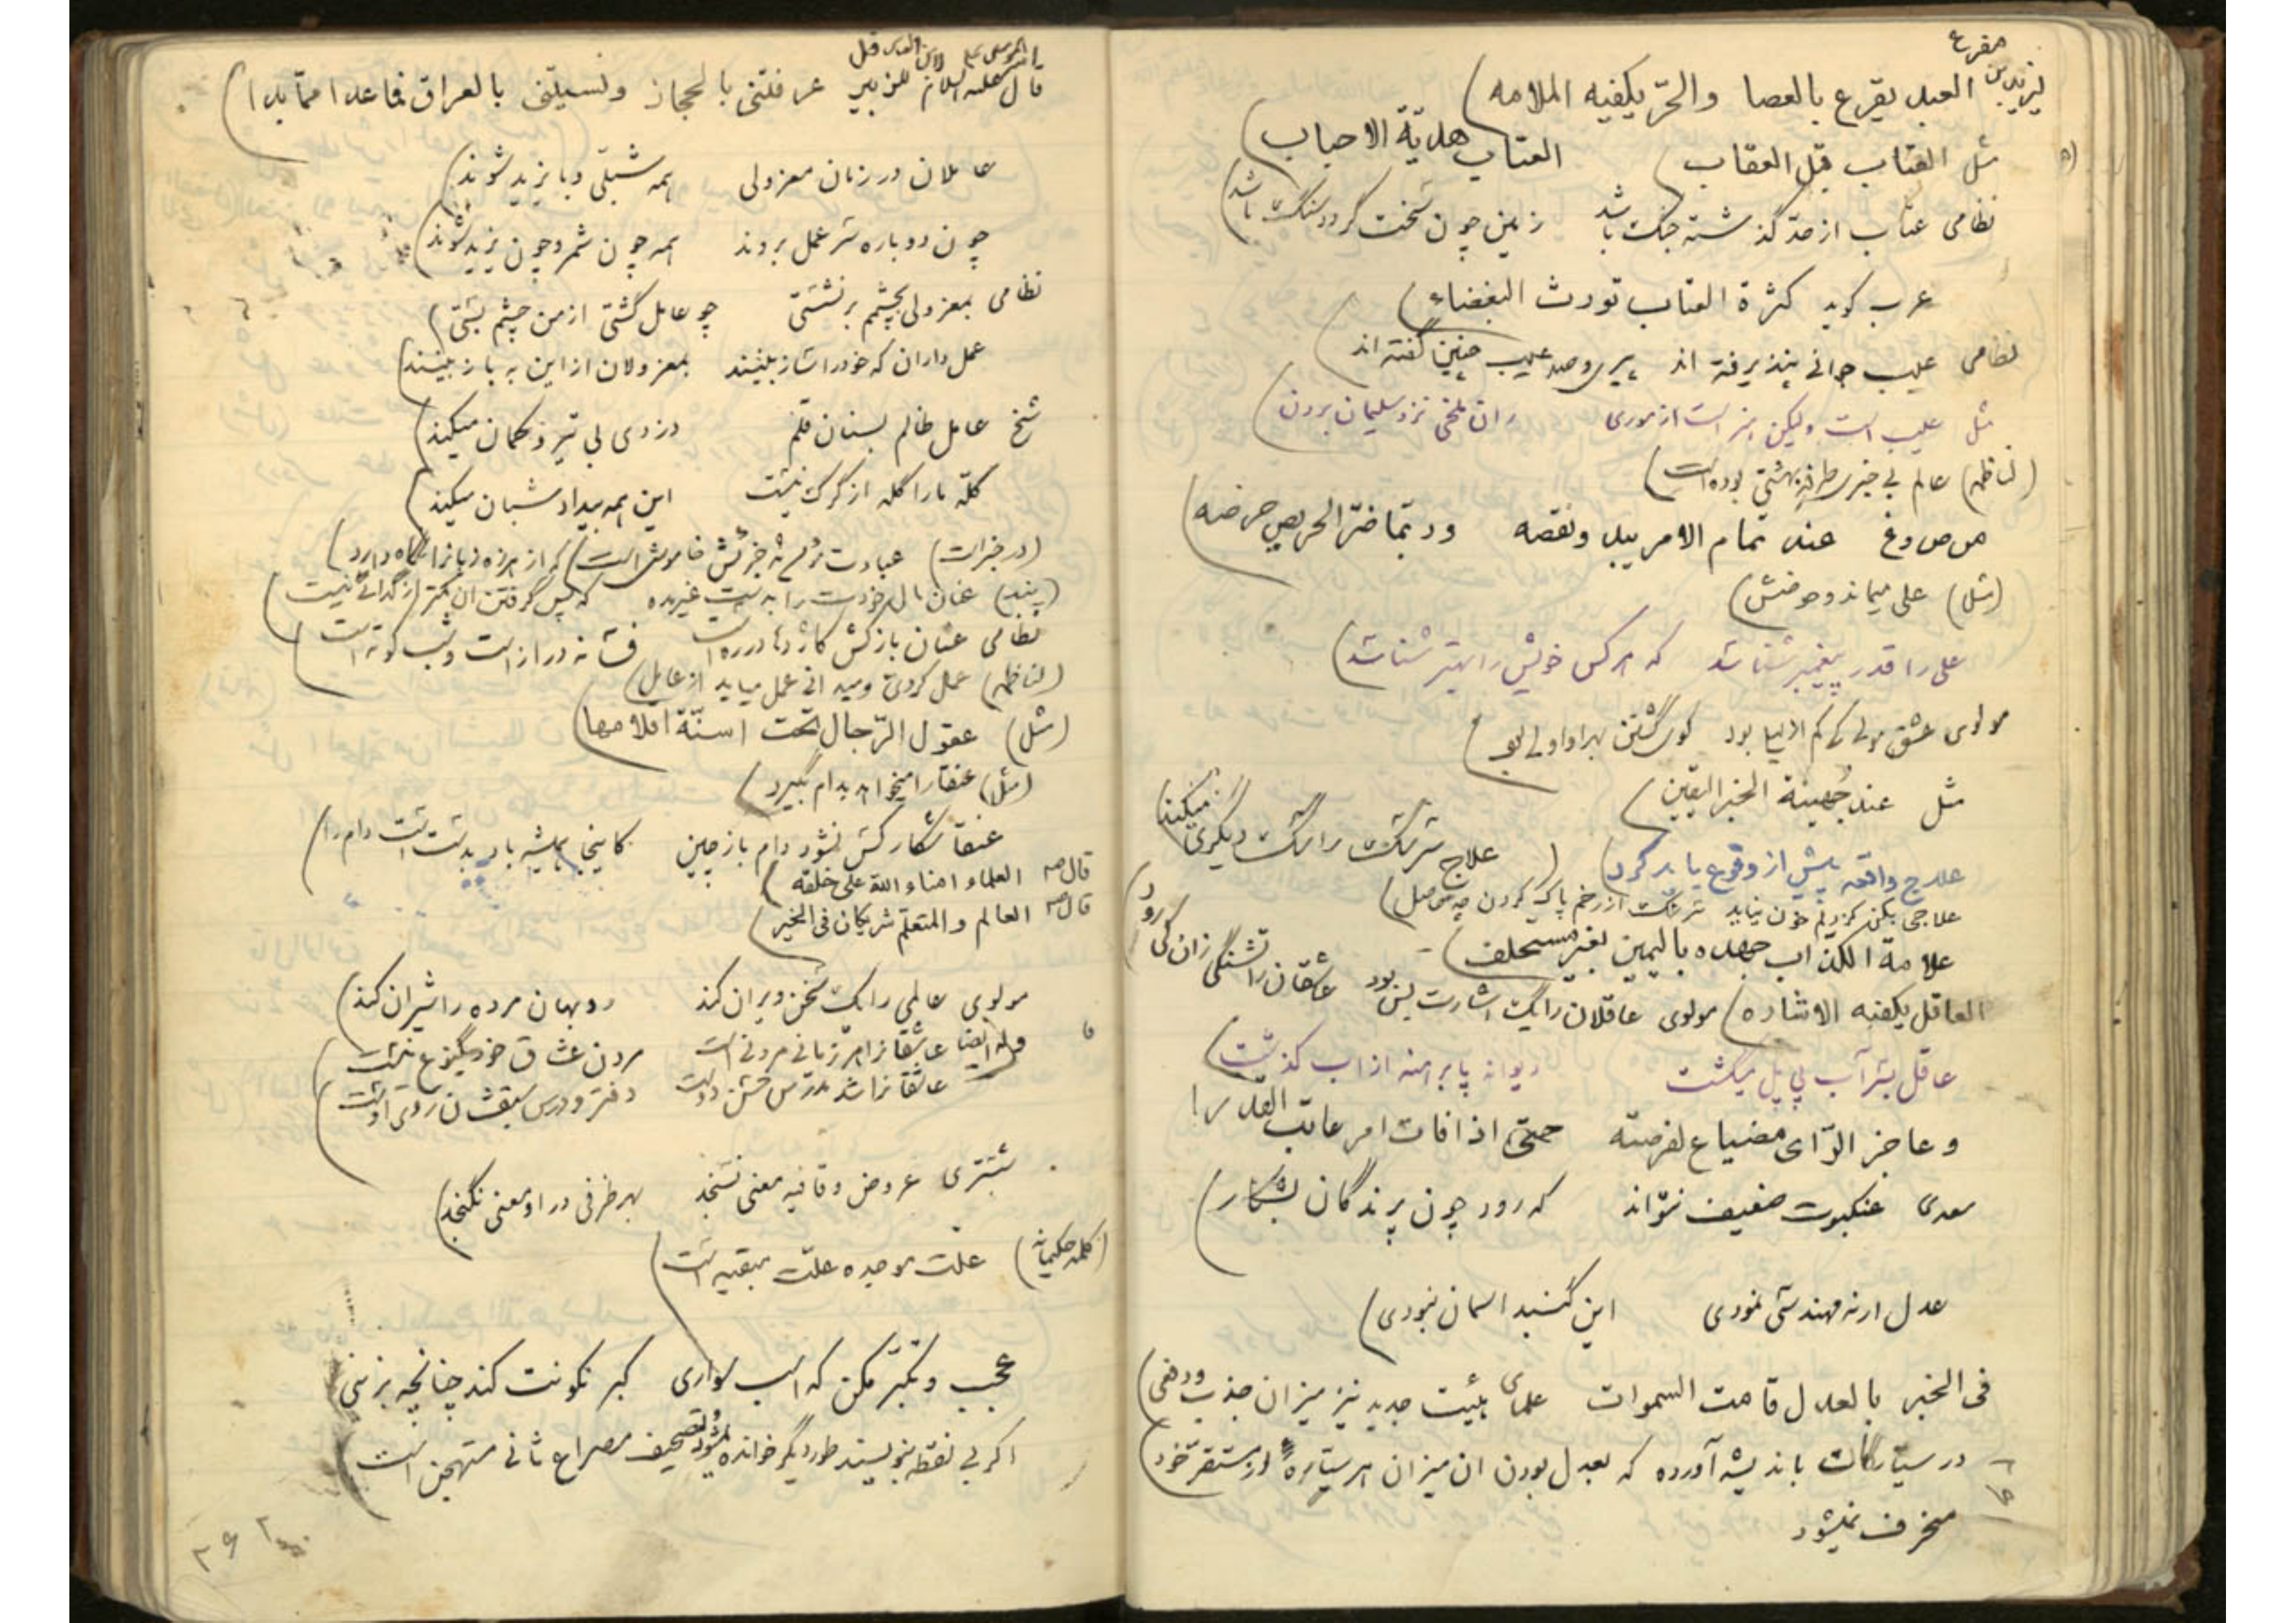 لیزید بن مفرع العبد یقرع بالعصا والحرّ یکفیه الملامه
مثل العتاب قبل العقاب العتاب هدیّة الاحباب
نظامی عتاب از حدّ گذشته جنگ باشد زمین چون سخت گردد سنگ باشد
عرب گوید کثرة العتاب تورث البغضاء
نظامی عیب جوانی نپذیرفته اند پیری و صد عیب چنین گفته اند
مثل عیب است ولیکن هنر است از موری ران ملخی نزد سلیمان بردن
(لناظمه) عالم بی خبری طرفه بهشتی بوده است
عند تمام الامر یبدو نقصه وربّما ضرّ الحریص حرصه
(مثل) علی میماند و حوضش
علی را قدر پیغمبر شناسد که هر کس خویش را بهتر شناسد
مولوی عشق مولی کی کم از لیلی بود گوی گشتن بهر او اولی بود
مثل عند جُهینة الخبر الیقین
علاج واقعه پیش از وقوع باید کرد
علاج سر سنگ را سنگ دیگری میکند
علاجی بکن کز دلم خون نیاید سرشک از رخم پاک کردن چه حاصل
علامة الکذاب جهده بالیمین بغیر مستحلف
العاقل یکفیه الاشاره مولوی عاقلان را یک اشارت بس بود عاشقان را تشنگی زان کی رود
عاقل بسر آب پی پل میگشت دیوانه پا برهنه از آب گذشت
وعاجز الرّای مضیاع لفرصته حتّی اذا فات امر عاتب القدرا
سعدی عنکبوت ضعیف نتواند که رود چون پرندگان بشکار
عدل ار نه مهندسی نمودی این گنبد اسمان نبودی
فی الخبر بالعدل قامت السموات علمای هیئت جدید نیز میزان جذب و دفعی
در سیّارگات باندیشه آورده که بعدل بودن ان میزان هر ستاره از مستقرّ خود
منحرف نمیشود
قال علیه السلام للزبیر عرفتنی بالحجاز ونسیتنی بالعراق فما عدا ممّا بدا
عاملان در زمان معزولی همه شبلی و بایزید شوند
چون دوباره سر عمل بروند همه چون شمر و چون یزید شوند
نظامی بمعزولی بچشمم برنشستی چو عامل گشتی از من چشم بستی
عمل داران که خود را ساز بینند بمعزولان از این به باز بینند
شیخ عامل ظالم بسنان قلم دزدی بی تیر و کمان میکند
گلّه ما را گله از گرگ نیست این همه بیداد شبان میکند
(در خبر است) عبادت خاموشی است که از هرزه زبان را نگاه دارد
(پند) عنان مال خودت را به دست غیر مده که پس گرفتن ان کمتر از گدائی نیست
نظامی عنان بازکش کاژدها در ره است فسانه دراز است و شب کوته است
(لناظمه) عمل کردی و میدانی عمل میاید از عامل
(مثل) عقول الرّجال تحت اسنّة اقلامها
(مثل) عنقا را میخواهد بدام بگیرد
عنقا شکار کس نشود دام باز چین کاینجا همیشه باد بدست است دام را
قال ص العلماء امناء الله علی خلقه
قال ص العالم والمتعلّم شریکان فی الخیر
مولوی عالمی را یک سخن ویران کند روبهان مرده را شیران کند
وله ایضا عاشقانرا هر زمانی مردنی است مردن عشاق خود یکنوع نیست
عاشقانرا شد مدرّس حسن دوست دفتر و درس و سبقشان روی اوست
شبستری عروض و قافیه معنی نسنجد بهر ظرفی در او معنی نگنجد
(کلمه حکیمانه) علّت موجده علّت مبقیه است
عجب و تکبّر مکن که اسب سواری کبر نگونت کند چنانچه بزنی
اگر بی نقطه بنویسند طور دیگر خوانده میشود تصحیف مصراع ثانی مستهجن است